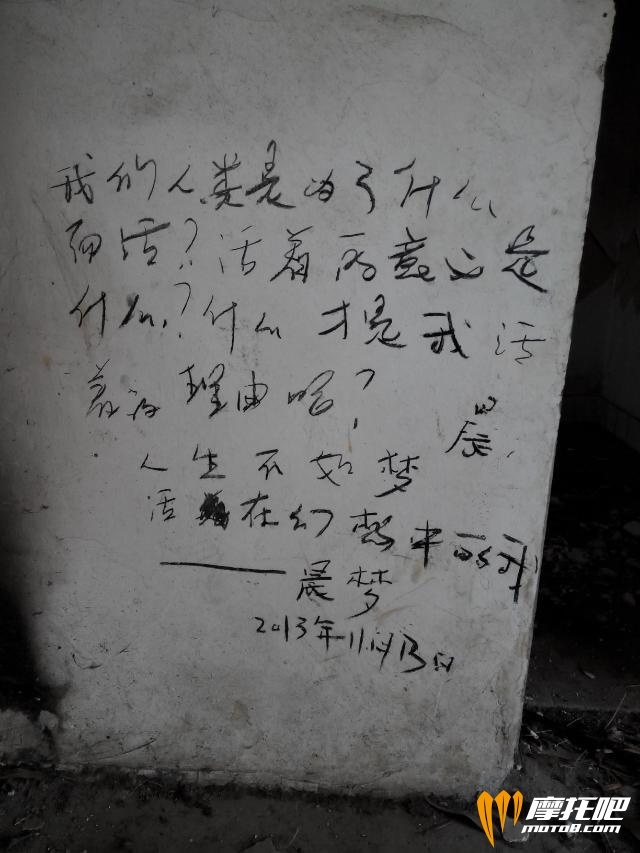 我的人类是为了什么
而活？活着的意义是
什么？什么才是我活
着的理由呢？
晨
人生不如梦
活在幻想中的我
——晨梦
2013年11月13日
摩托吧
moto8.com